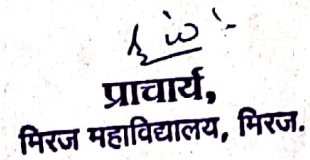 प्राचार्य,
मिरज महाविद्यालय, मिरज.